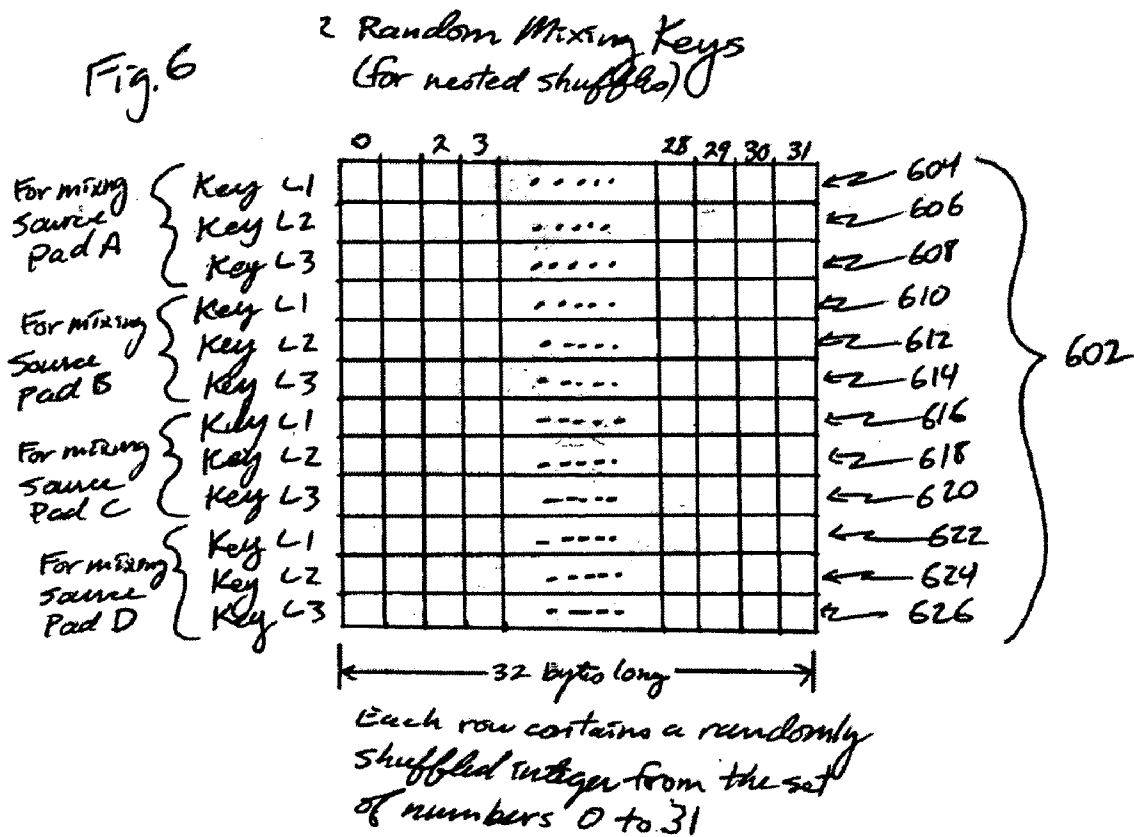 Fig. 6
2 Random Mixing Keys
(for nested shuffles)
0 2 3 28 29 30 31
For mixing
Source
Pad A
Key L1 604
Key L2 606
Key L3 608
For mixing
Source
Pad B
Key L1 610
Key L2 612
Key L3 614
For mixing
Source
Pad C
Key L1 616
Key L2 618
Key L3 620
For mixing
Source
Pad D
Key L1 622
Key L2 624
Key L3 626
602
32 bytes long
Each row contains a randomly
shuffled integer from the set
of numbers 0 to 31